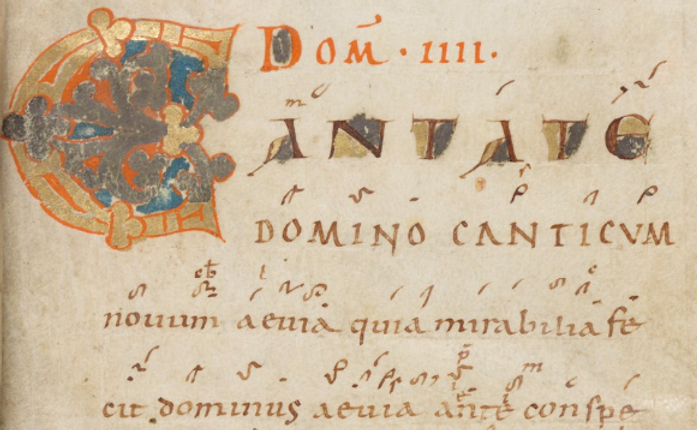 DOM̄ · IIII.
CANTATE
DOMINO CANTICVM
nouum aeuia quia mirabilia fe
cit dominus aeuia ante conspe